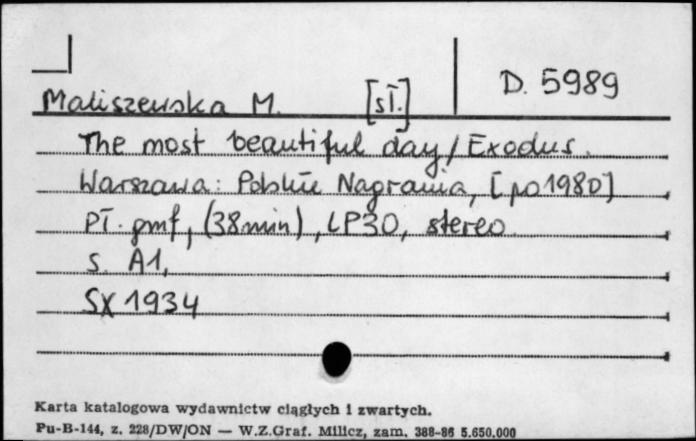 Maliszewska M. [sł.] D. 5989
The most beautiful day / Exodus.
Warszawa: Polskie Nagrania, [po 1980]
Pł. gmf, (38 min), LP30, stereo
s. A1,
SX 1934
Karta katalogowa wydawnictw ciągłych i zwartych.
Pu-B-144, z. 228/DW/ON — W.Z.Graf. Milicz, zam. 388-86 5.650.000